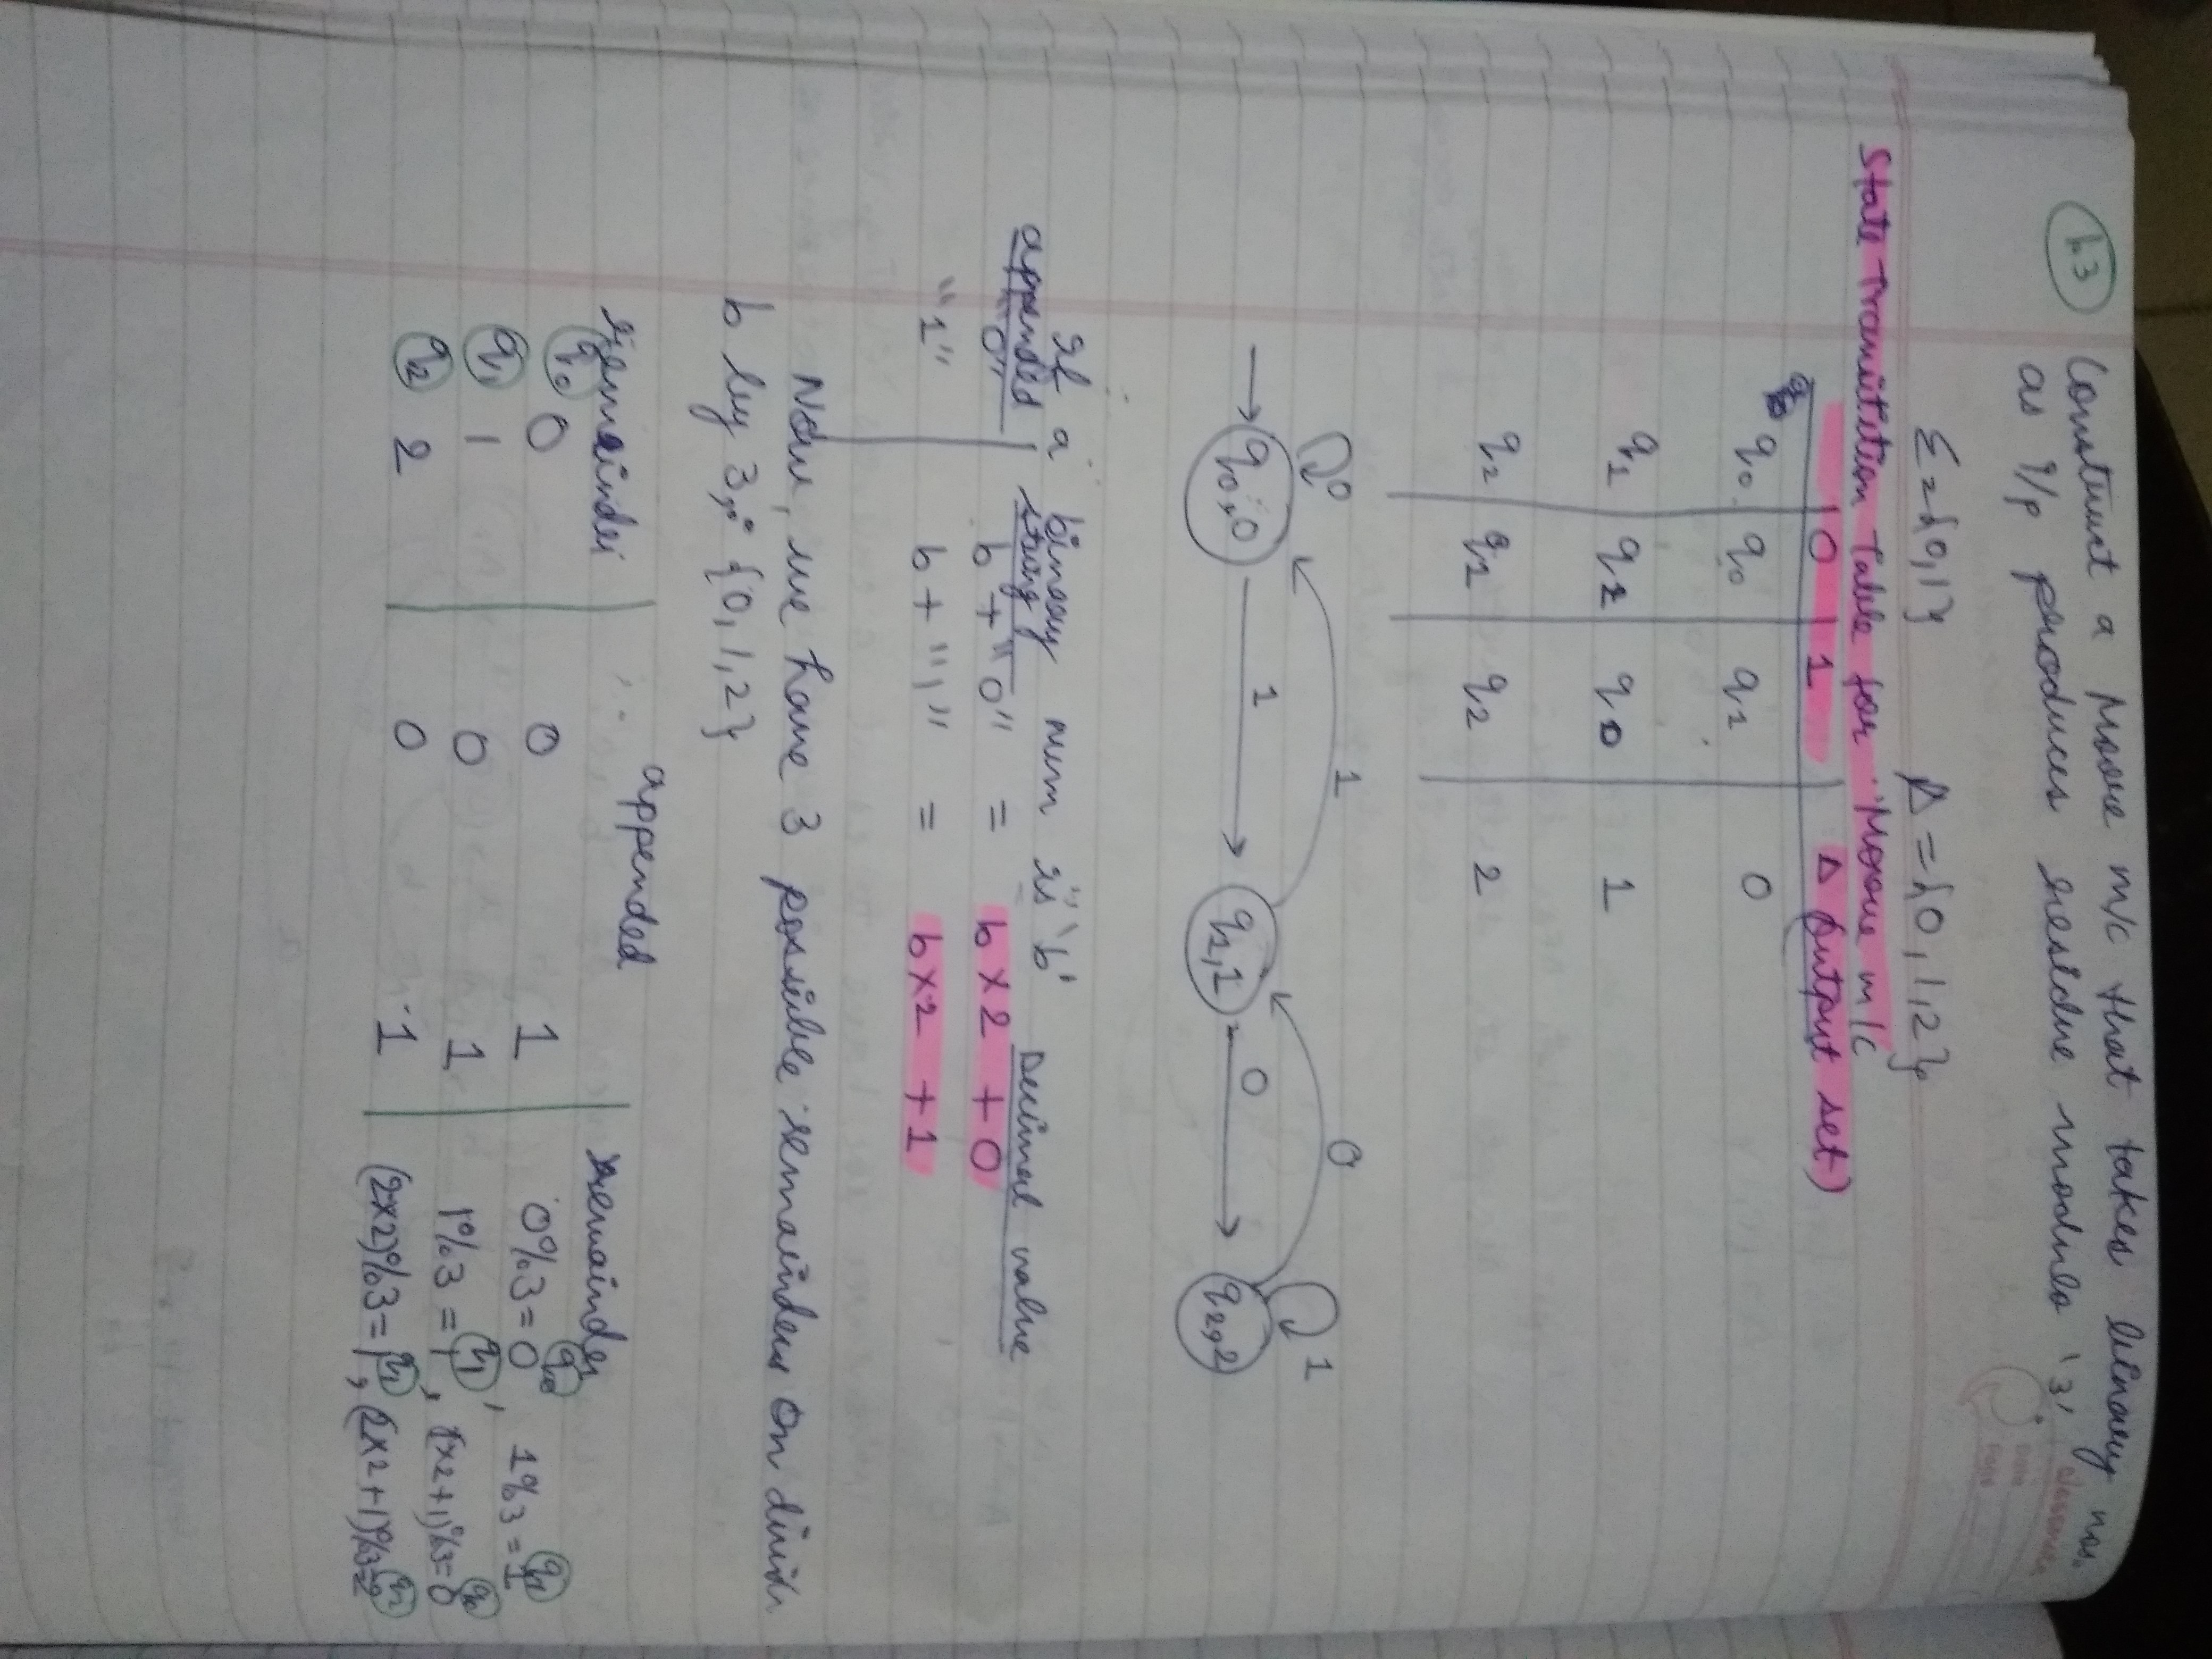 h3
Construct a Moore m/c that takes binary nos.
as i/p produces residue modulo '3'.
Σ = {0,1} Δ = {0,1,2}
State Transition Table for Moore m/c
0 1 Δ (output set)
q0 q0 q1 0
q1 q2 q0 1
q2 q1 q2 2
0 1 0 1
q0,0 1 q1,1 0 q2,2
If a binary num is 'b'
appended string Decimal value
"0" b + "0" = b×2 + 0
"1" b + "1" = b×2 + 1
Now, we have 3 possible remainders on dividi
b by 3,: {0,1,2}
remainder appended remainder
q0 0 0 1 0%3=0 q0, 1%3=1 q1
q1 1 0 1 1%3=1 q1, (1×2+1)%3=0 q0
q2 2 0 1 (2×2)%3=1 q1, (2×2+1)%3=2 q2